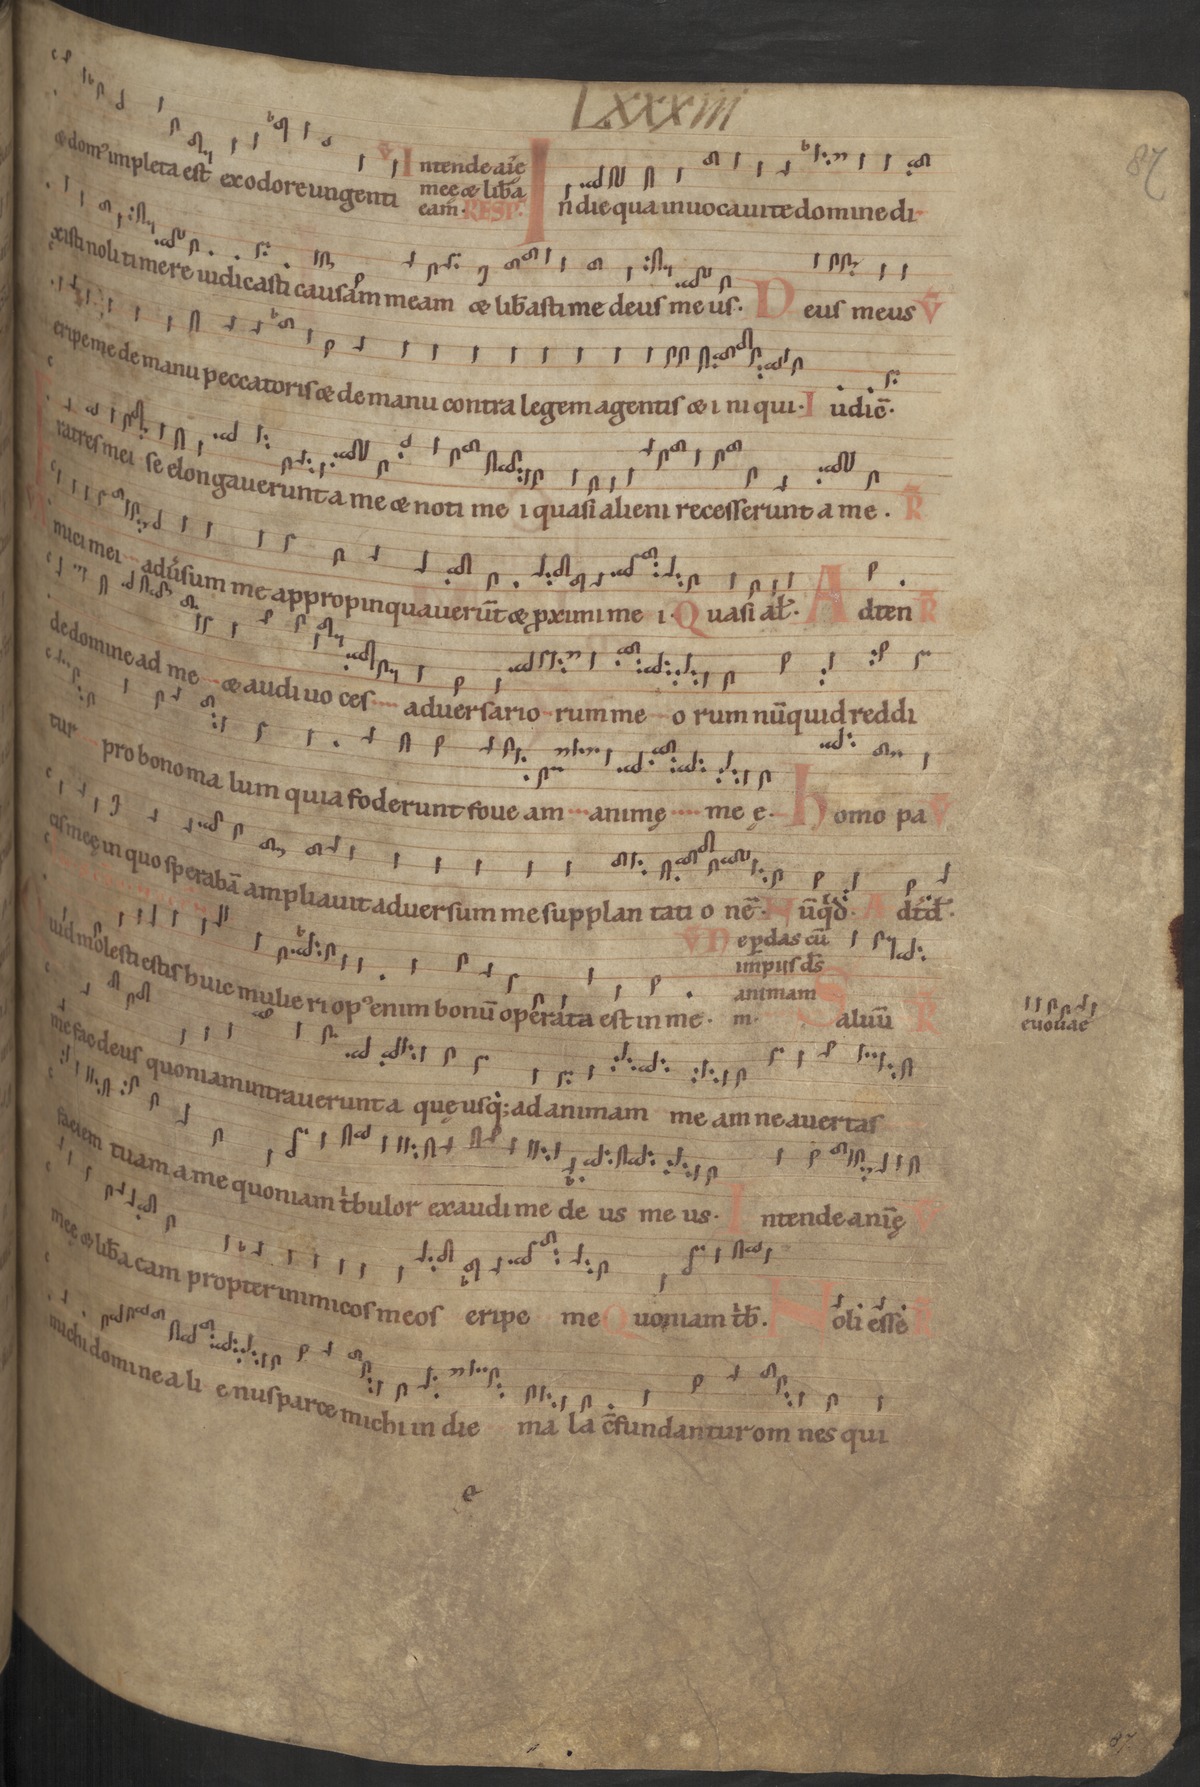 LXXXIIII
87
& dom᷒ impleta est ex odore ungenti V̄ Intende aīe
meę & lib̄a
eam. RESP.
In die qua inuocaui te domine di
xisti noli timere iudicasti causam meam & lib̄asti me deus meus. Deus meus V̄
eripe me de manu peccatoris & de manu contra legem agentis & i ni qui. Iudic̄.
Fratres mei se elongauerunt a me & noti me i quasi alieni recesserunt a me. R̄
mici mei aduersum me appropinquauerūt & pximi me i. Quasi al. Adten R̄
de domine ad me & audi uo ces aduersario rum me o rum nūquid reddi
tur pro bono ma lum quia foderunt foue am animę me ę. Homo pa V̄
cis meę in quo sperabā ampliauit aduersum me supplan tati o nē. Nūqd. Adtd.
V̄ Ne pdas cū
impiis ds̄
animam
m.
uid molesti estis huic mulie ri op᷒ enim bonū operata est in me. Saluū R̄
euouae
me fac deus quoniam intrauerunt a que usq; ad animam me am ne auertas
faciem tuam a me quoniam tbulor exaudi me de us me us. Intende anīę V̄
meę & lib̄a eam propter inimicos meos eripe me Quoniam tb̄. Noli esse R̄
michi domine a li enus parce michi in die ma la c̄fundantur om nes qui
e
87